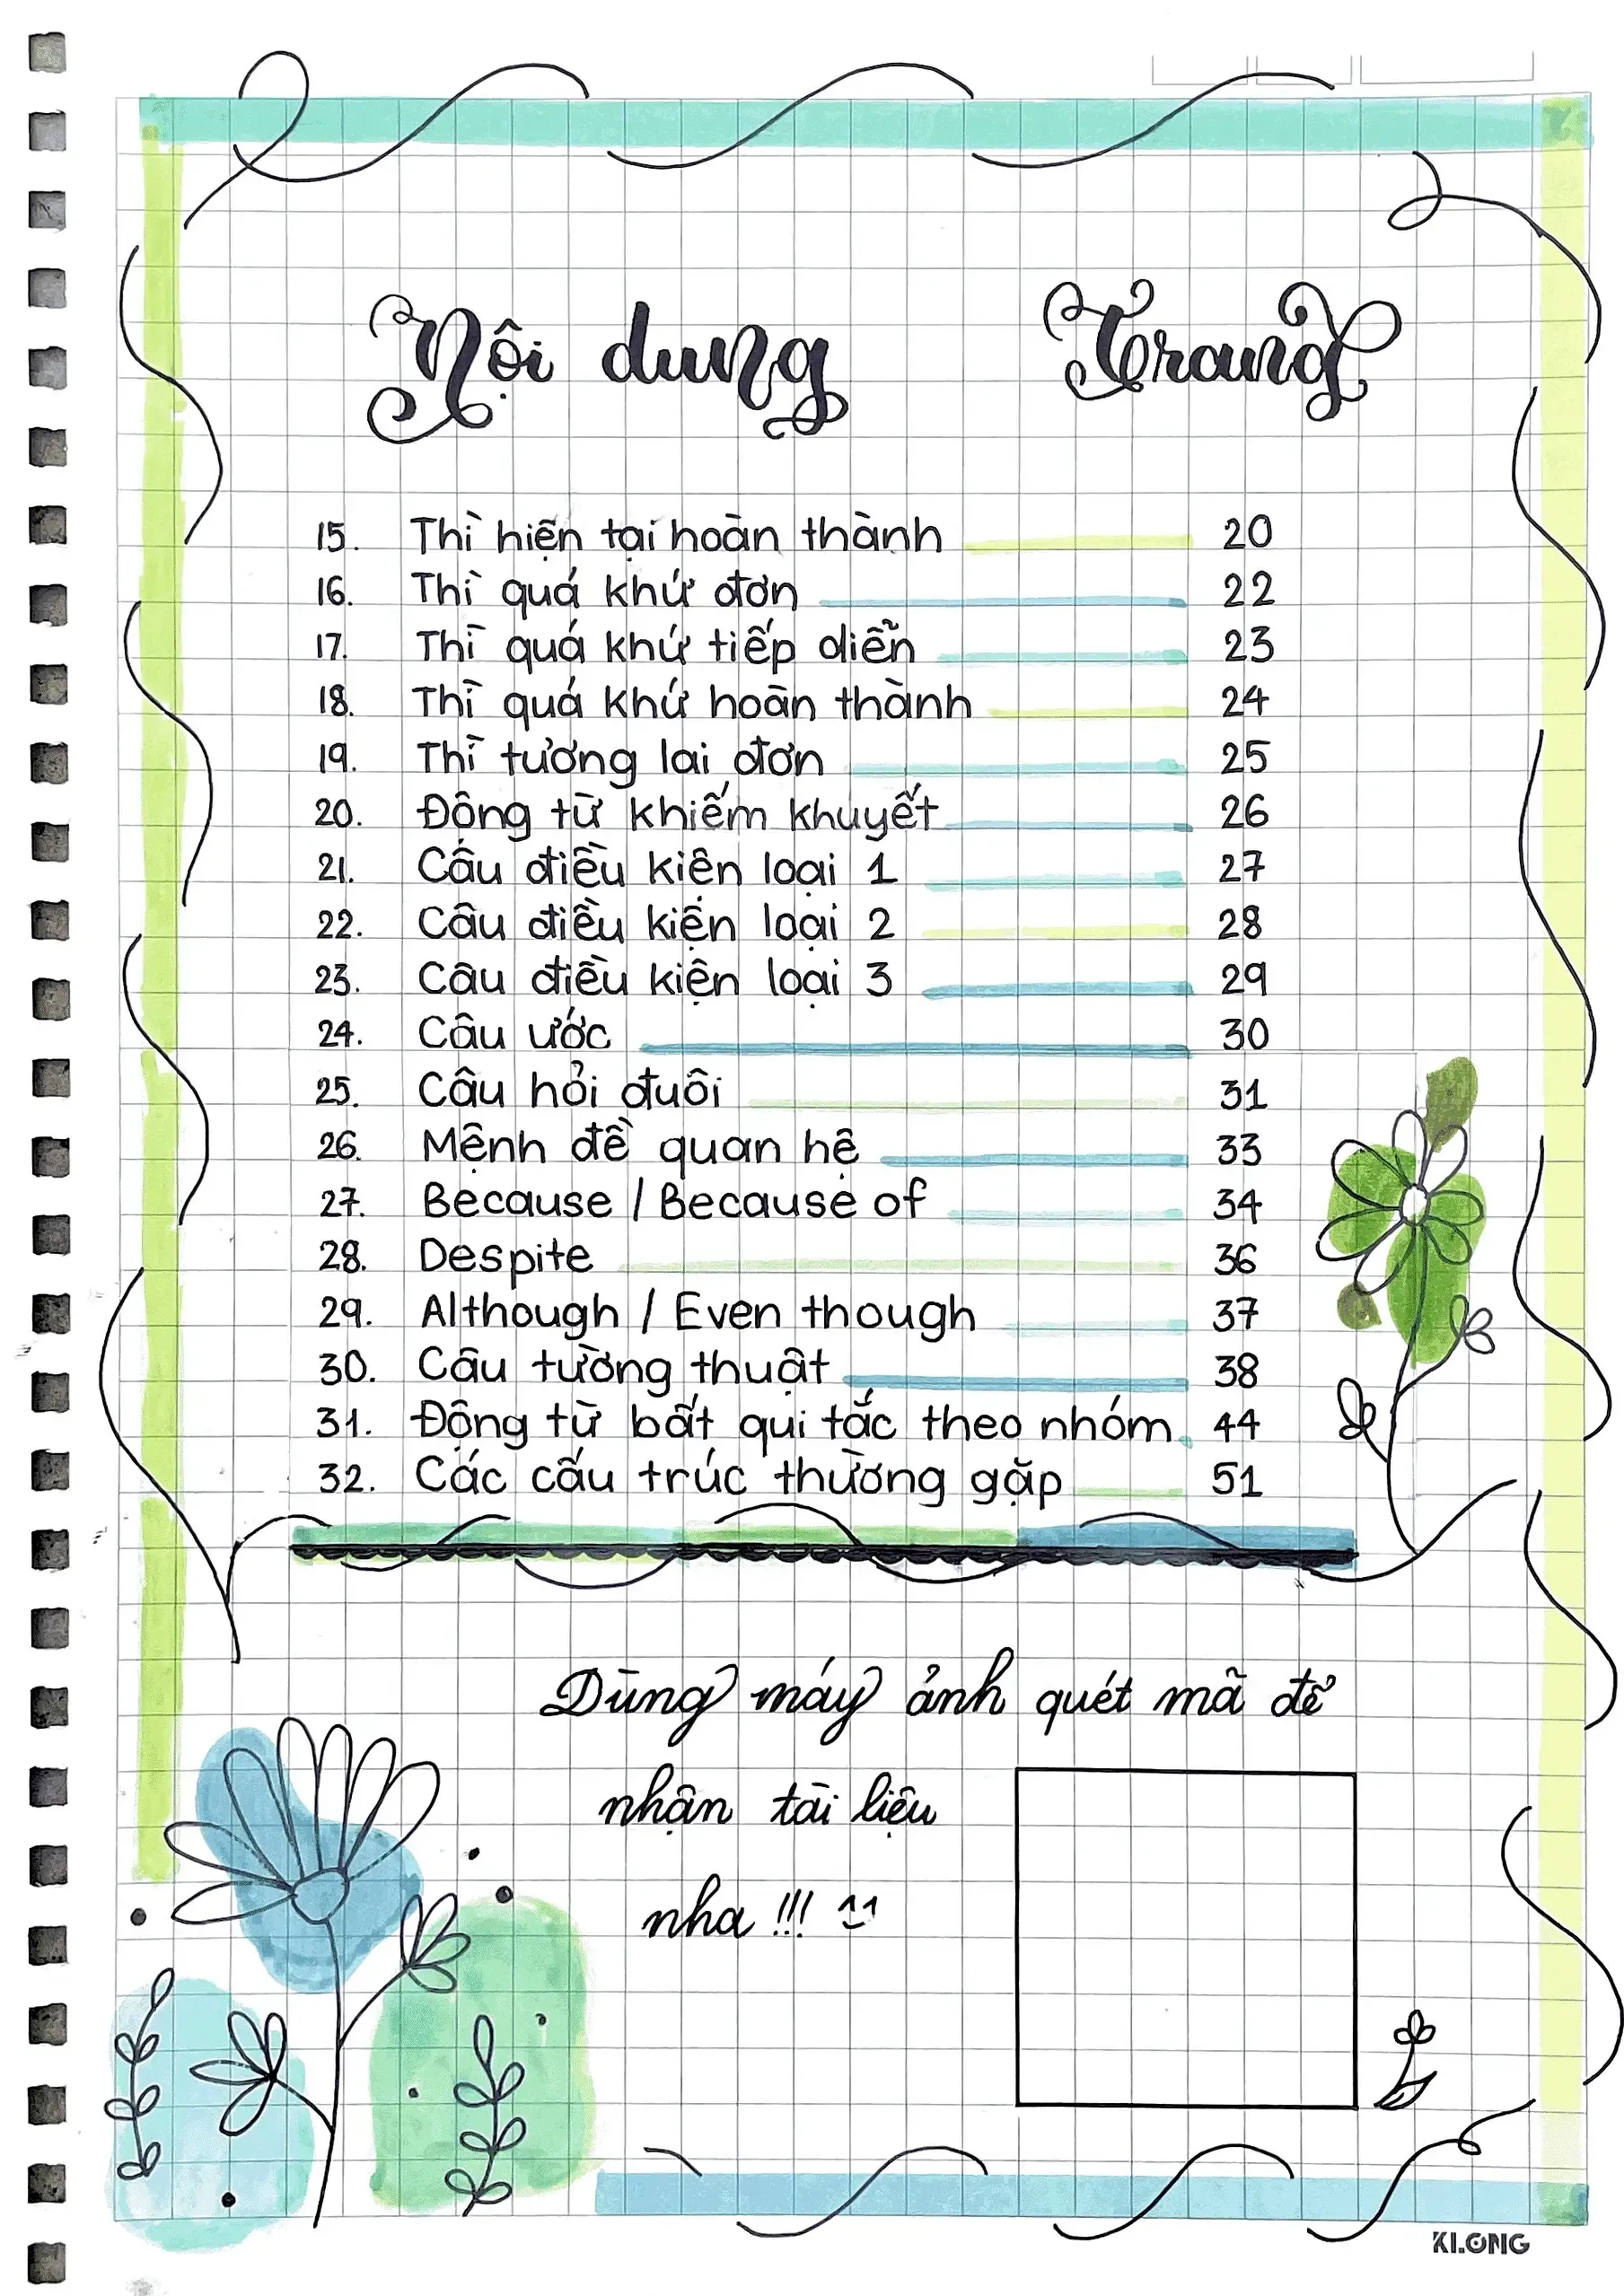 Nội dung Trang
15. Thì hiện tại hoàn thành 20
16. Thì quá khứ đơn 22
17. Thì quá khứ tiếp diễn 23
18. Thì quá khứ hoàn thành 24
19. Thì tương lai đơn 25
20. Động từ khiếm khuyết 26
21. Câu điều kiện loại 1 27
22. Câu điều kiện loại 2 28
23. Câu điều kiện loại 3 29
24. Câu ước 30
25. Câu hỏi đuôi 31
26. Mệnh đề quan hệ 33
27. Because / Because of 34
28. Despite 36
29. Although / Even though 37
30. Câu tường thuật 38
31. Động từ bất qui tắc theo nhóm 44
32. Các cấu trúc thường gặp 51
Dùng máy ảnh quét mã để
nhận tài liệu
nha !!! ^^
KLONG